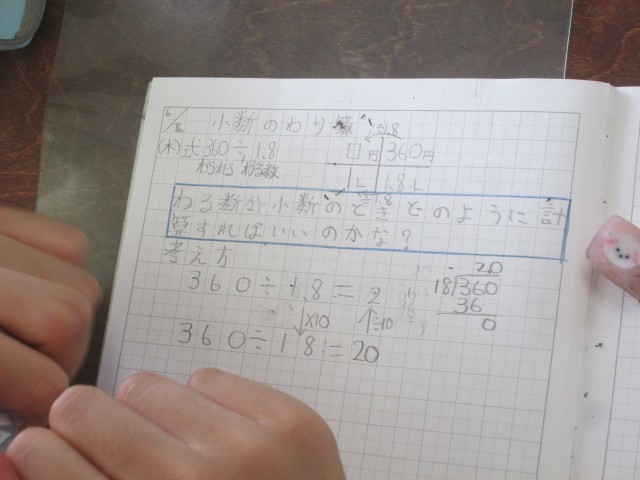 6/16 小数のわり算
(木) 式 360÷1.8
わられる わる数
÷1.8
□円 360円
1L 1.8L
÷1.8
わる数が小数のときどのように計
算すればいいのかな?
考え方
360÷1.8=2
×10 ÷10
360÷18=20
20
18)360
36
0